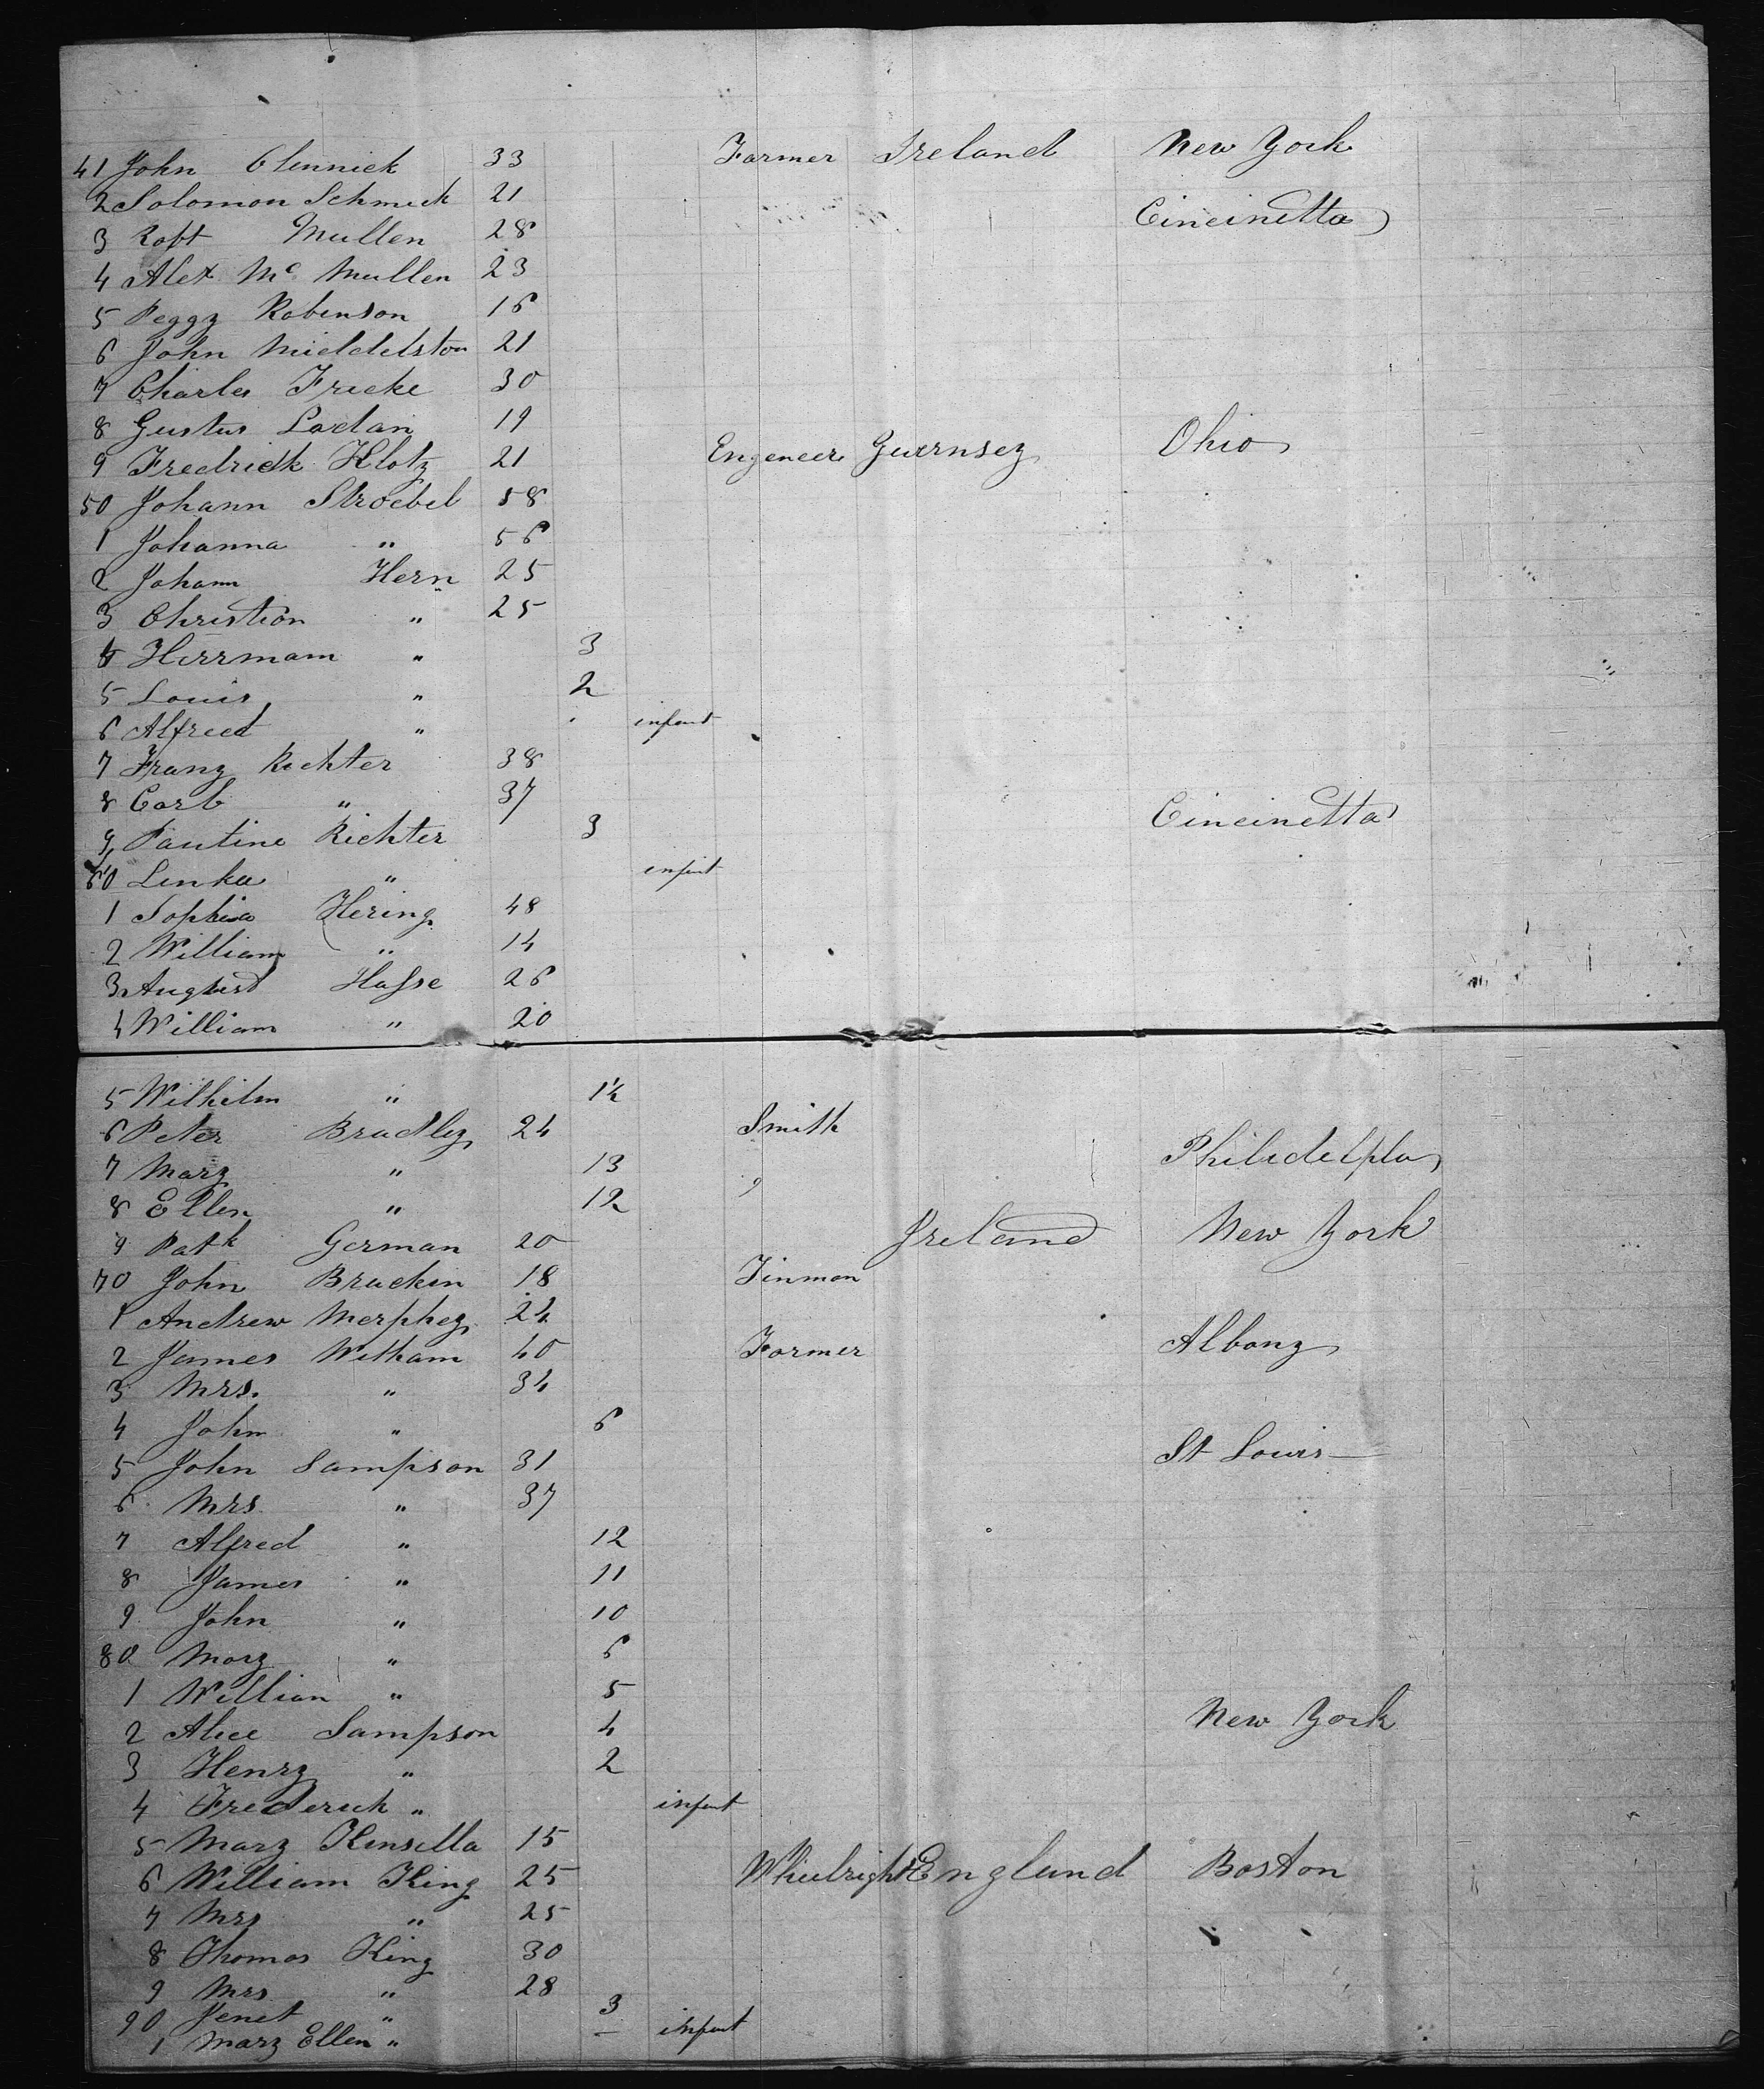 41 John Glennick 33 Farmer Ireland New York
2 Solomon Schmick 21
3 Robt Mullen 28 Cincinetta
4 Alex Mc Mullen 23
5 Peggy Robinson 16
6 John Middelston 21
7 Charles Fricke 30
8 Gustus Lodan 19
9 Fredrick Klotz 21 Engeneer Guernsey Ohio
50 Johann Stroebel 58
1 Johanna " 56
2 Johann Hern 25
3 Christion " 25
4 Herrmam " 3
5 Louis " 2
6 Alfred " infant
7 Franz Richter 38
8 Carl " 37
9 Pauline Richter 3 Cincinetta
60 Linka " infant
1 Sophia Hering 48
2 William " 14
3 August Hasse 26
4 William " 20
5 Wilhelm " 1½
6 Peter Bradley 24 Smith
7 Mary " 13 Philidelpla
8 Ellen " 12
9 Patk German 20 Ireland New York
70 John Brackin 18 Tinman
1 Andrew Merphey 24
2 James Witham 40 Farmer Albany
3 Mrs. " 34
4 John " 6
5 John Sampson 31 St Louis
6 Mrs " 37
7 Alfred " 12
8 James " 11
9 John " 10
80 Mary " 6
1 Willian " 5
2 Alice Sampson 4 New York
3 Henry " 2
4 Frederick " infant
5 Mary Kinsella 15
6 William King 25 Wheelright England Boston
7 Mrs " 25
8 Thomas King 30
9 Mrs " 28
90 Jenet " 3
1 Mary Ellen " — infant